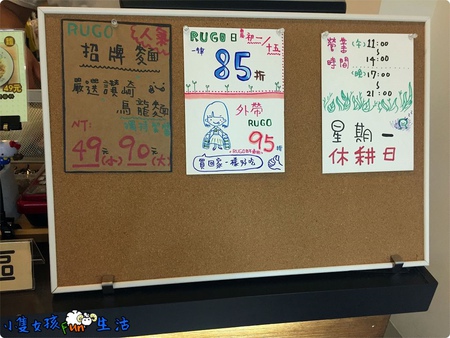 RUGO 人氣
招牌麵
嚴選讚岐
烏龍麵
NT:
49元(小) 90元(大)
RUGO日 初一/十五
一律
85折
外帶
RUGO
95折
營業時間
(午) 11:00
~
14:00
(晚) 17:00
~
21:00
星期一
休耕日
49元
區
小隻女孩fun生活